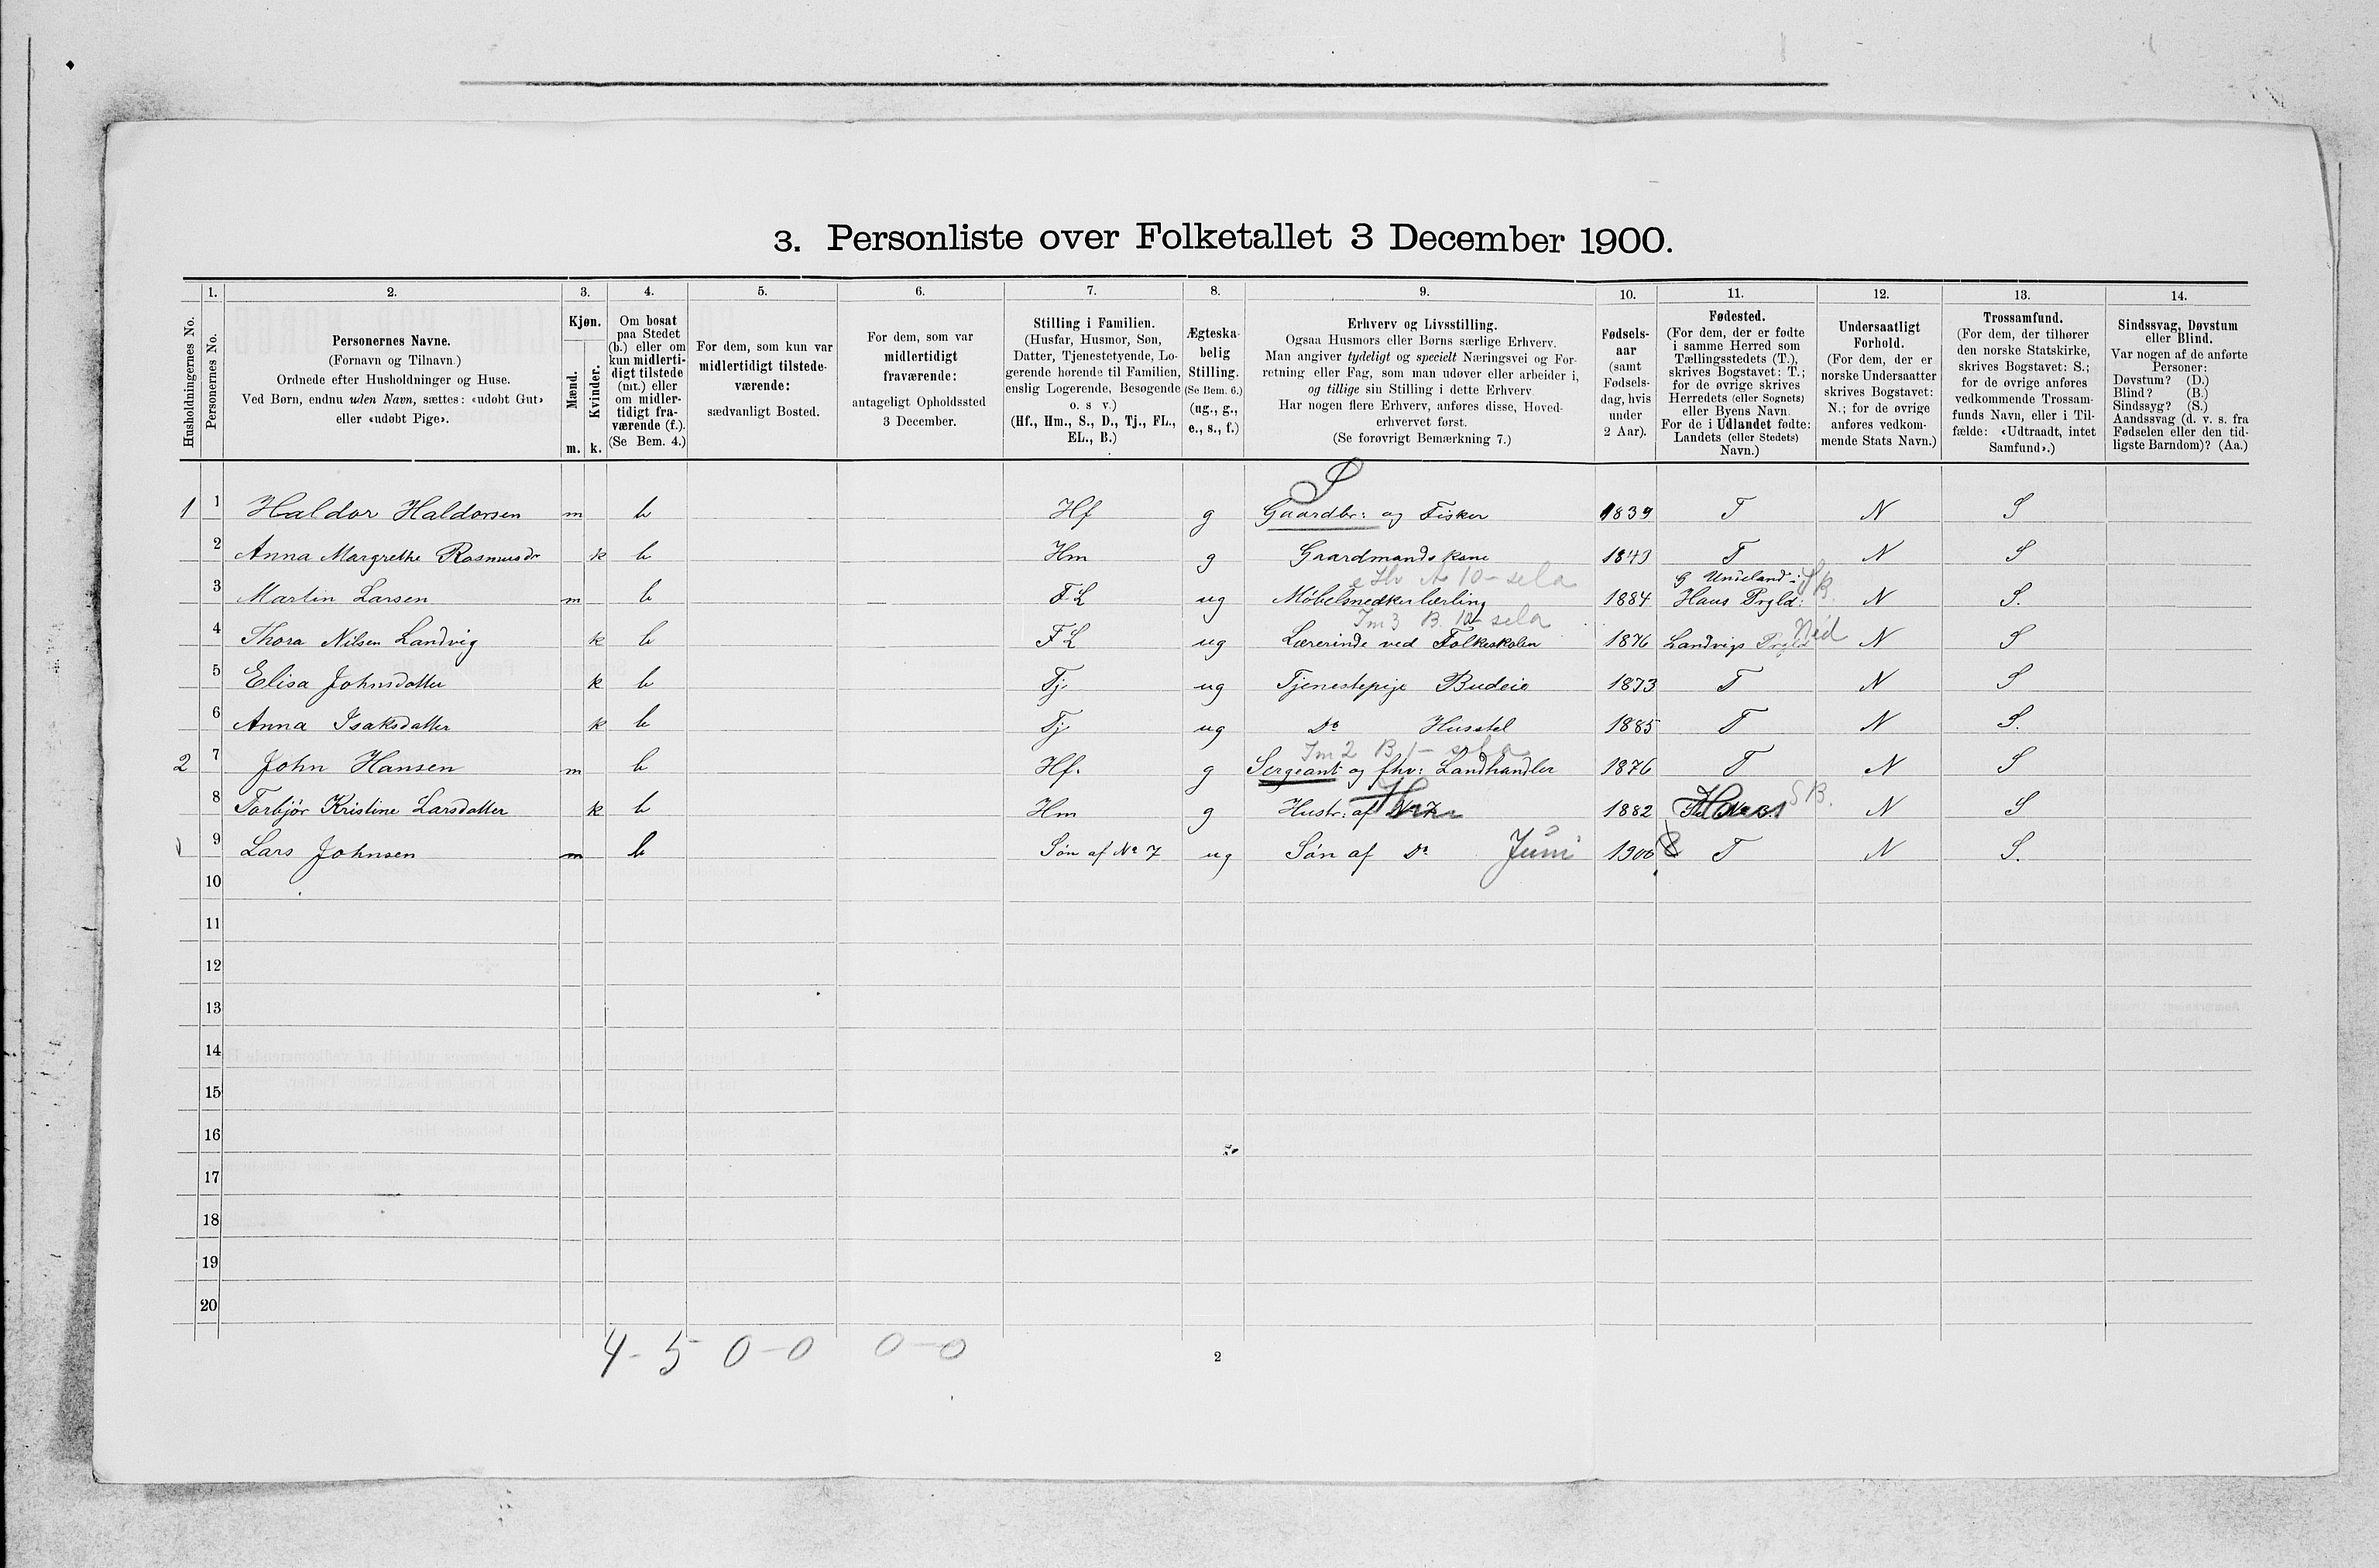 3. Personliste over Folketallet 3 December 1900.
1. 2. 3. 4. 5. 6. 7. 8. 9. 10. 11. 12. 13. 14.
Husholdningernes No.
Personernes No.
Personernes Navne.
(Fornavn og Tilnavn.)
Ordnede efter Husholdninger og Huse.
Ved Børn, endnu uden Navn, sættes: «udøbt Gut»
eller «udøbt Pige».
Kjøn.
Mænd.
Kvinder.
m. k.
Om bosat
paa Stedet
(b.) eller om
kun midlerti-
digt tilstede
(mt.) eller
om midler-
tidigt fra-
værende (f.).
(Se Bem. 4.)
For dem, som kun var
midlertidigt tilstede-
værende:
sædvanligt Bosted.
For dem, som var
midlertidigt
fraværende:
antageligt Opholdssted
3 December.
Stilling i Familien.
(Husfar, Husmor, Søn,
Datter, Tjenestetyende, Lo-
gerende hørende til Familien,
enslig Logerende, Besøgende
o. s v.)
(Hf., Hm., S., D., Tj., FL.,
EL., B.)
Ægteska-
belig
Stilling.
(Se Bem. 6.)
(ug., g.,
e., s., f.)
Erhverv og Livsstilling.
Ogsaa Husmors eller Børns særlige Erhverv.
Man angiver tydeligt og specielt Næringsvei og For-
retning eller Fag, som man udøver eller arbeider i,
og tillige sin Stilling i dette Erhverv
Har nogen flere Erhverv, anføres disse, Hoved-
erhvervet først.
(Se forøvrigt Bemærkning 7.)
Fødsels-
aar
(samt
Fødsels-
dag, hvis
under
2 Aar).
Fødested.
(For dem, der er fødte
i samme Herred som
Tællingsstedets (T.),
skrives Bogstavet: T.;
for de øvrige skrives
Herredets (eller Sognets)
eller Byens Navn.
For de i Udlandet fødte:
Landets (eller Stedets)
Navn.)
Undersaatligt
Forhold.
(For dem, der er
norske Undersaatter
skrives Bogstavet:
N.; for de øvrige
anføres vedkom-
mende Stats Navn.)
Trossamfund.
(For dem, der tilhører
den norske Statskirke,
skrives Bogstavet: S.;
for de øvrige anføres
vedkommende Trossam-
funds Navn, eller i Til-
fælde: «Udtraadt, intet
Samfund».)
Sindssvag, Døvstum
eller Blind.
Var nogen af de anførte
Personer:
Døvstum? (D.)
Blind? (B.)
Sindssyg? (S.)
Aandssvag (d. v. s. fra
Fødselen eller den tid-
ligste Barndom)? (Aa.)
1 1 Haldor Haldorsen m b Hf g Gaardbr: og Fisker 1839 T N S
2 Anna Margrethe Rasmusdr k b Hm g Gaardmands kone 1849 T N S
3 Martin Larsen m b FL ug Møbelsnedkerlærling 1884 Haus Prgld: N S.
4 Thora Nilsen Landvig k b FL ug Lærerinde ved Folkeskolen 1876 Landvigs Prgld Ned N S
5 Elisa Johnsdatter k b Tj ug Tjenestepige Budeie 1873 T N S
6 Anna Isaksdatter k b Tj ug Do Husstel 1885 T N S.
2 7 John Hansen m b Hf. g Sergeant og fhv: Landhandler 1876 T N S
8 Torbjør Kristine Larsdatter k b Hm g Hustr: af 1882 Haus SB. N S
9 Lars Johnsen m b Søn af No 7 ug Søn af Do Juni 1900 T N S.
10
11
12
13
14
15
16
17
18
19
20
4 - 5 0 - 0 0 - 0
2